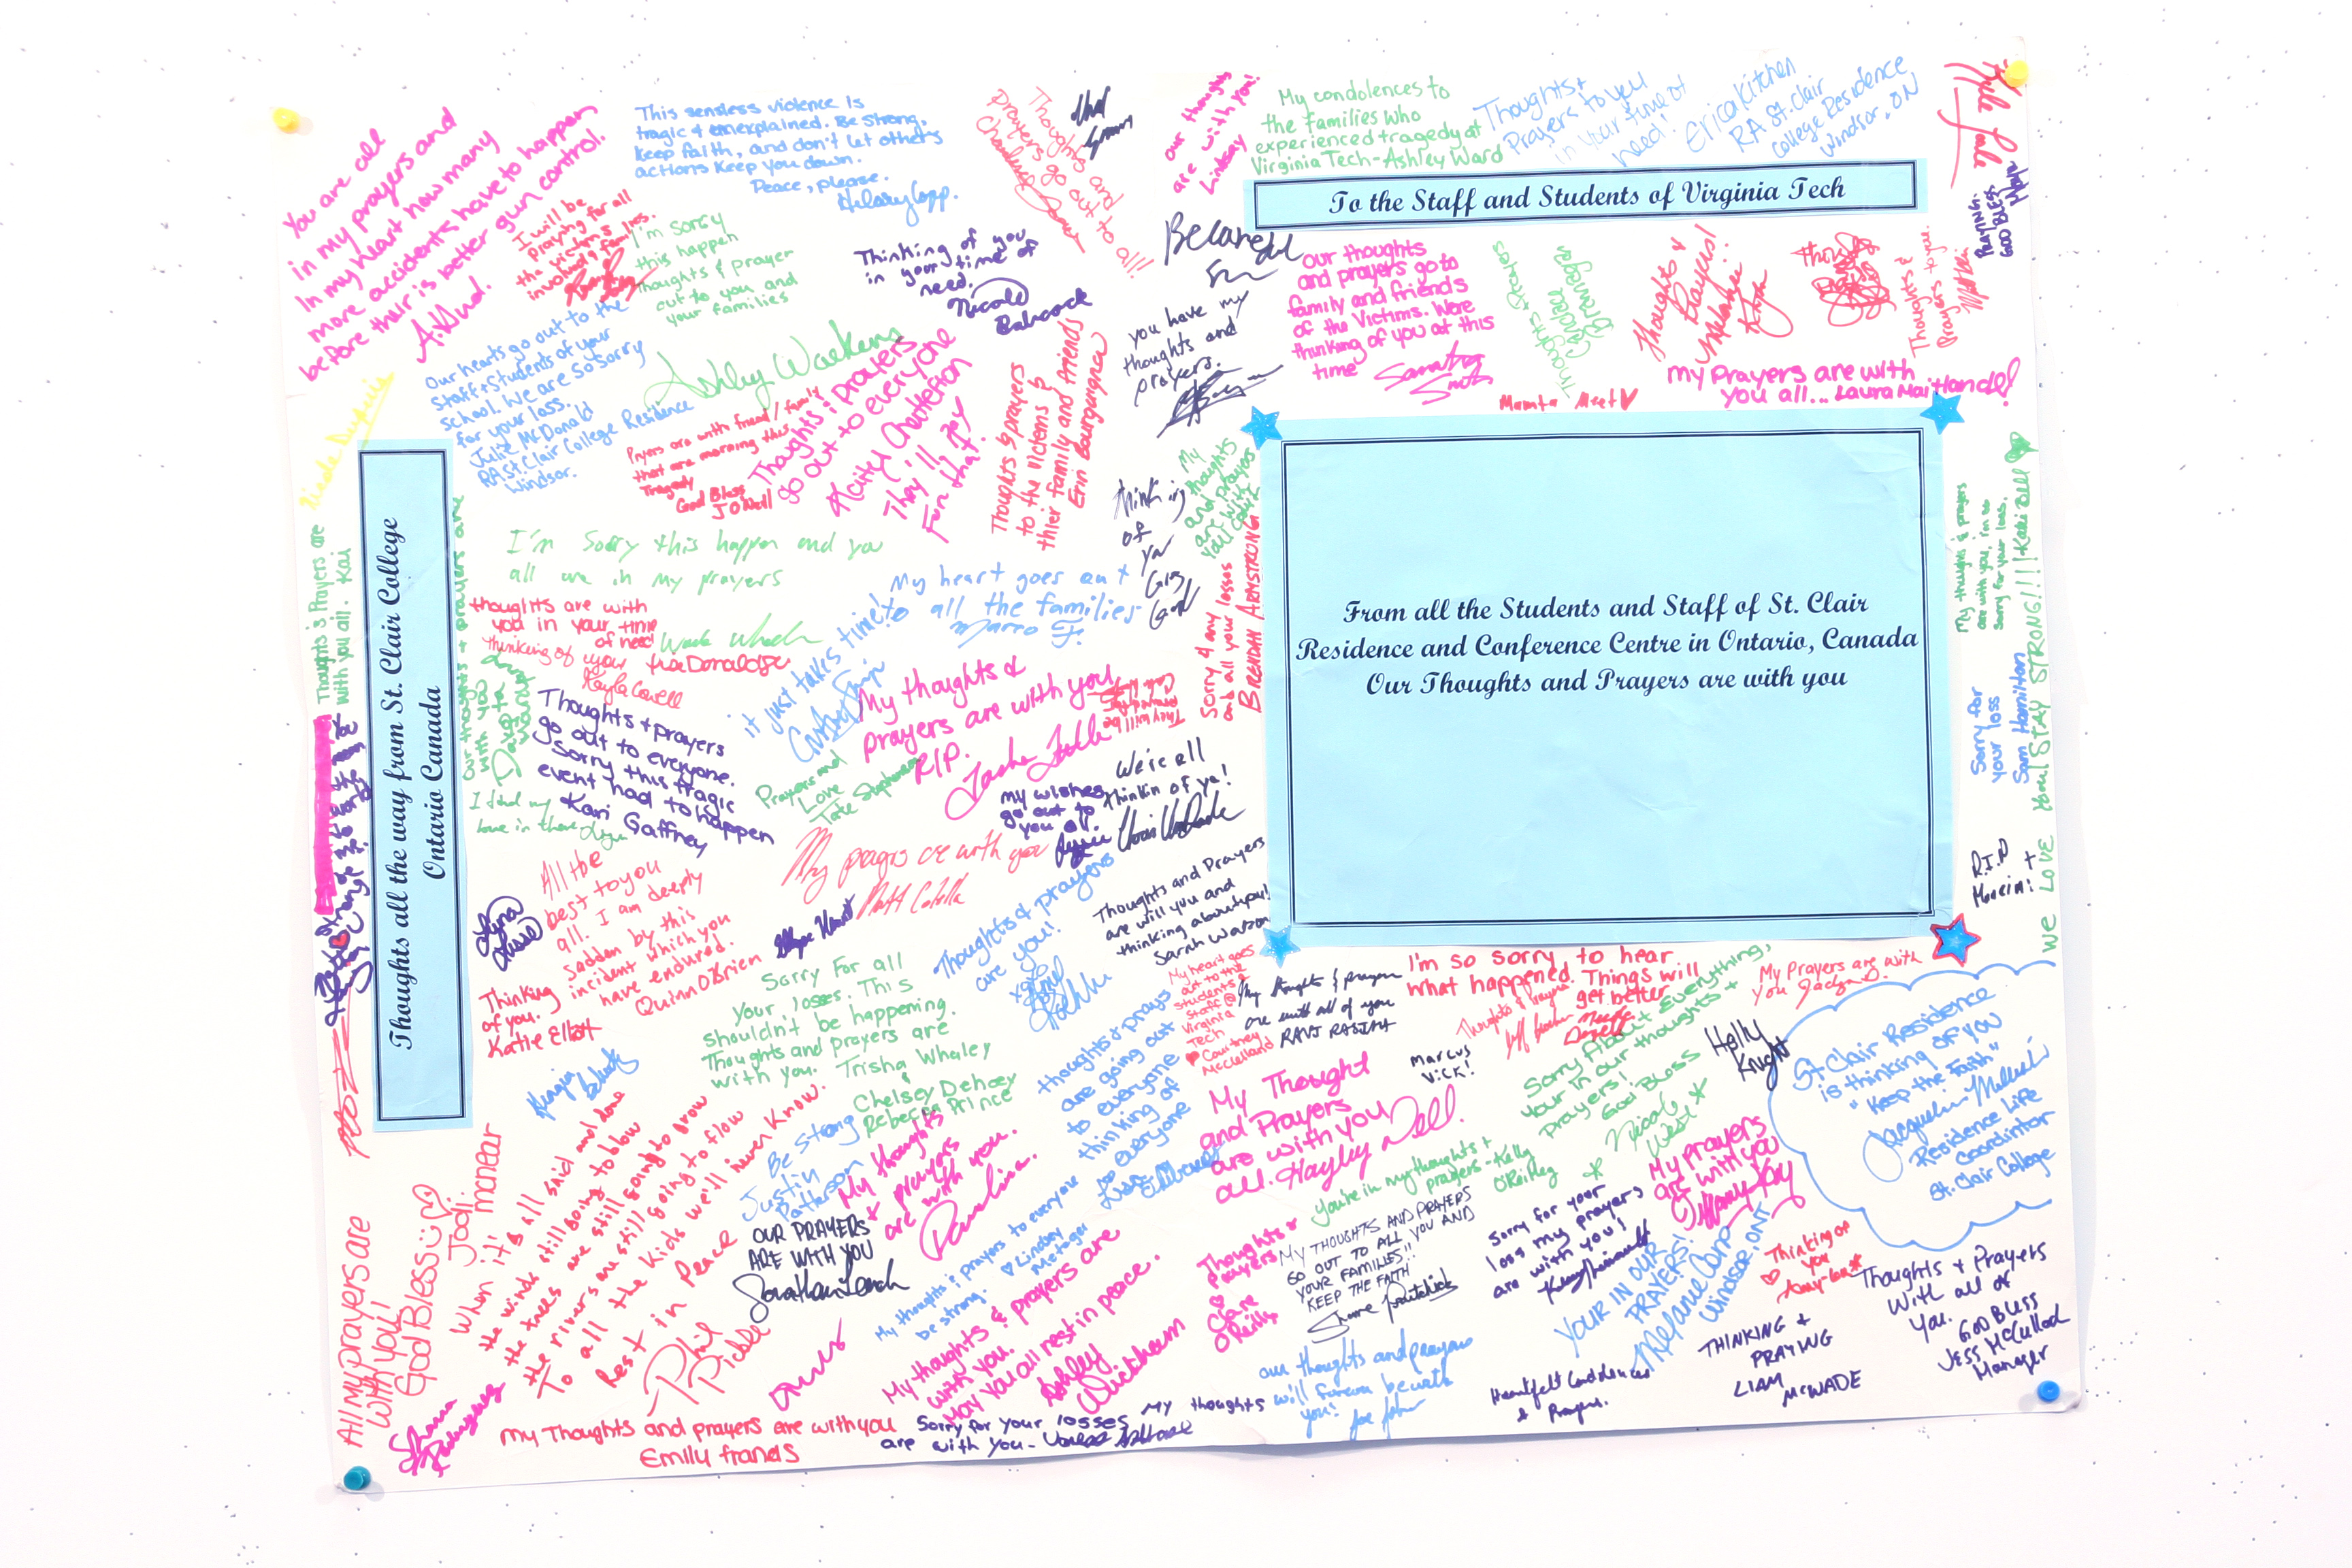 You are all
in my prayers and
In my heart how many
more accidents have to happen
before their is better gun control.
This sensless violence is
tragic & unexplained. Be strong,
keep faith, and don't let others
actions keep you down.
Peace, please.
Thoughts and
prayers go out to all!
our thoughts
are with you!
Lindsay
My condolences to
the families who
experienced tragedy at
Virginia Tech-Ashley Ward
Thoughts +
Prayers to you
in your time of
need!
Erica Kitchen
RA St. Clair
College Residence
Windsor, ON
PRAYING.
GOD BLES
To the Staff and Students of Virginia Tech
I will be
praying for all
the victims
involved & families.
I'm sorry
this happen
Thoughts & prayer
out to you and
your families
Thinking of you
in your time of
need.
Nicole
Babcock
our thoughts
and prayers go to
family and friends
of the Victims. Were
thinking of you at this
time
Thoughts + Prayers
Candace
Thoughts &
Prayers!
Melanie
Thoughts &
Prayers to you.
my Prayers are with
you all... Laura Maitland!
Mamta Meet
you have my
thoughts and
prayers.
Our hearts go out to the
Staff + Students of your
School. We are so sorry
for your loss.
Julie McDonald
RA St. Clair College Residence
Windsor.
Ashley Watkins
Pryers are with friend / family
that are morning this
Tragedy
God Bless
J O'Neill
Thoughts & prayers
go out to everyone
They'll pay
For that!
Thoughts & prayers
to the victems &
thier family and friends
Erin Bourgungnon
My
thoughts
and prayers
are with
you!
thinking
of
ya
I'm sorry this happen and you
all are in my prayers
My heart goes out
to all the families
Marro F.
Thoughts & Prayers are
with you all. Kai
Thoughts all the way from St. Clair College
Ontario Canada
thoughts are with
you in your time
of need
thinking of you
Kayla Cavell
it just takes time!
our thoughts & prayers are
with you
Sorry 4 any
and all your losses
BRENDAN ARMSTRONG
From all the Students and Staff of St. Clair
Residence and Conference Centre in Ontario, Canada
Our Thoughts and Prayers are with you
My thoughts & prays
are with you, i'm so
sorry for your loss.
Sorry for
your loss
Sam Hamilton
We LOVE you! STAY STRONG!!!! Katie Bell
Thoughts + prayers
go out to everyone.
Sorry this tragic
event had to happen
Kari Gaffney
My thoughts &
prayers are with you
RIP.
They will be
Prayers and
Love
Tate
my wishes
go out to
you all.
We're all
thinkin of ya!
My prayers are with you
All the
best to you
all. I am deeply
sadden by this
incident which you
have endured.
Quinn O'Brien
Thinking
of you.
Katie Elliott
Thoughts & prayers
are you!
Thoughts and Prayers
are will you and
thinking about you!
Sarah Watson
Sorry For all
Your losses. This
shouldn't be happening.
Thoughts and prayers are
with you. Trisha Whaley
&
Chelsey Dehoey
Rebecca Prince
My heart goes
out to the
students &
staff @
Virginia
Tech
Courtney
McClelland
My thoughts & prayers
are with all of you
RAVI
I'm so sorry to hear
what happened. Things will
get better
Thoughts & Prayers
My Prayers are with
you
MARCUS
VICK!
Holly
Knight
Sorry About Everything,
Your in our thoughts +
prayers!
God Bless
Nicole
West
St. Clair Residence
is thinking of you
"Keep the Faith"
Residence Life
Coordintor
St. Clair College
thoughts & prays
are going out
to everyone
thinking of
everyone
My Thought
and Prayers
are with you
all. Hayley Dell.
When it's all said and done
the winds still going to blow
the trees are still going to grow
the rivers are still going to flow
To all the kids we'll never know.
Rest in Peace
Phil
Pickle
All My prayers are
with you!
God Bless
Jodi
Be strong
Justin
Patterson
My thoughts
& prayers
are with you.
Paulina.
OUR PRAYERS
ARE WITH YOU
My thoughts & prayers to everyone
be strong.
Lindsey
Metzger
My thoughts & prayers are
with you.
may you all rest in peace.
Ashley
Wickham
Thoughts &
Prayers
Clare
O'Reilly
you're in my thoughts +
prayers - Kelly
O'Reilly
MY THOUGHTS AND PRAYERS
GO OUT TO ALL YOU AND
YOUR FAMILIES!!
KEEP THE FAITH
Sorry for your
loss my prayers
are with you!
My prayers
are with you
Tiffany Kay
YOUR IN OUR
PRAYERS!
Melanie
Windsor, ONT
Thinking of
you
Thoughts & Prayers
With all of
you.
GOD BLESS
JESS McCullod
Manager
THINKING +
PRAYING
LIAM
McWADE
Heartfelt Condolences
& Prayers.
our thoughts and prayers
will forever be with
you!
My Thoughts and prayers are with you
Emily francis
Sorry for your losses My thoughts
are with you - Vanessa